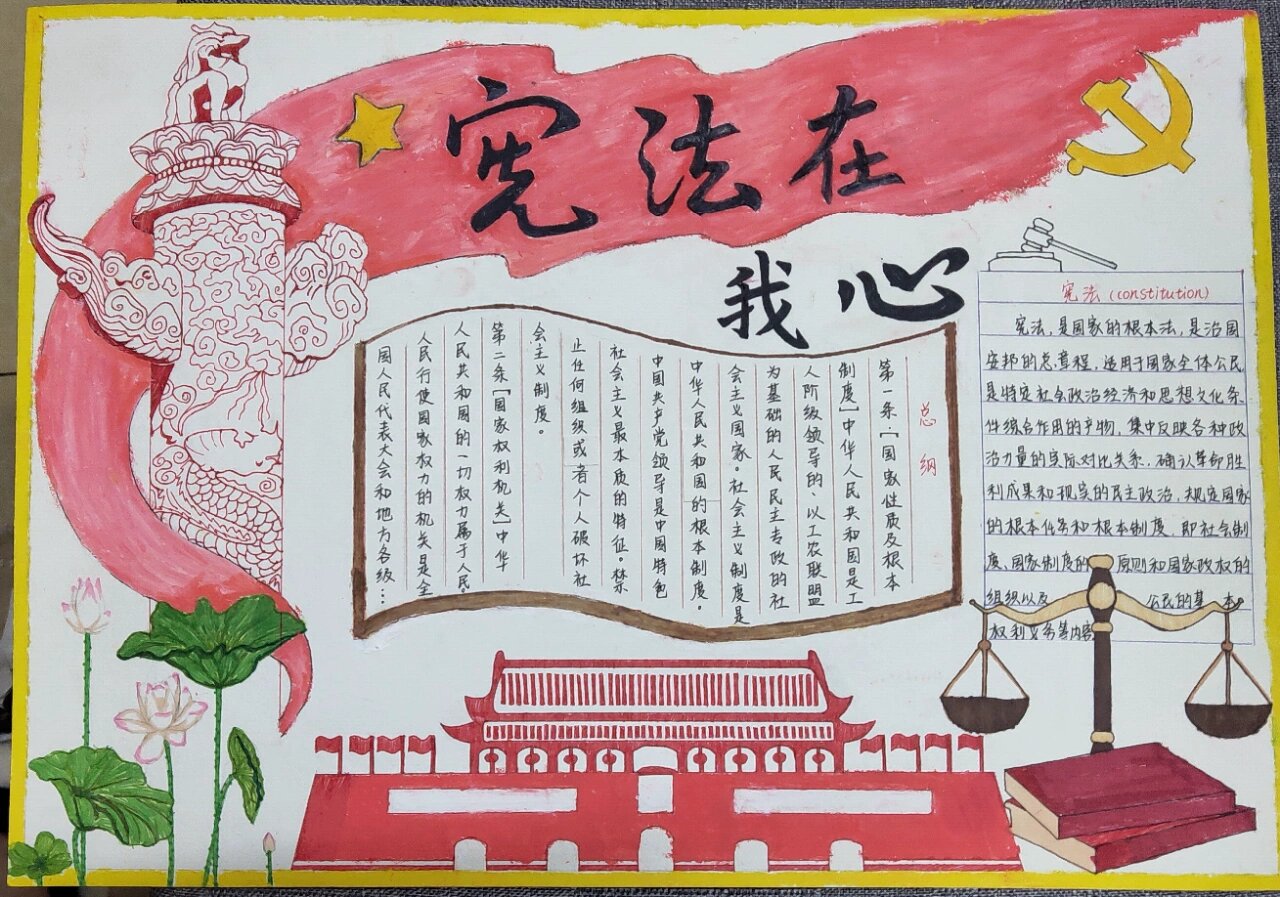 宪法在
我心
总纲
第一条·[国家性质及根本
制度]中华人民共和国是工
人阶级领导的、以工农联盟
为基础的人民民主专政的社
会主义国家。社会主义制度是
中华人民共和国的根本制度。
中国共产党领导是中国特色
社会主义最本质的特征。禁
止任何组织或者个人破坏社
会主义制度。
第二条[国家权利机关]中华
人民共和国的一切权力属于人民。
人民行使国家权力的机关是全
国人民代表大会和地方各级…
宪法(constitution)
宪法,是国家的根本法,是治国
安邦的总章程,适用于国家全体公民
是特定社会政治经济和思想文化条
件综合作用的产物,集中反映各种政
治力量的实际对比关系,确认革命胜
利成果和现实的民主政治,规定国家
的根本任务和根本制度,即社会制
度、国家制度的原则和国家政权的
组织以及 公民的基本
权利义务等内容